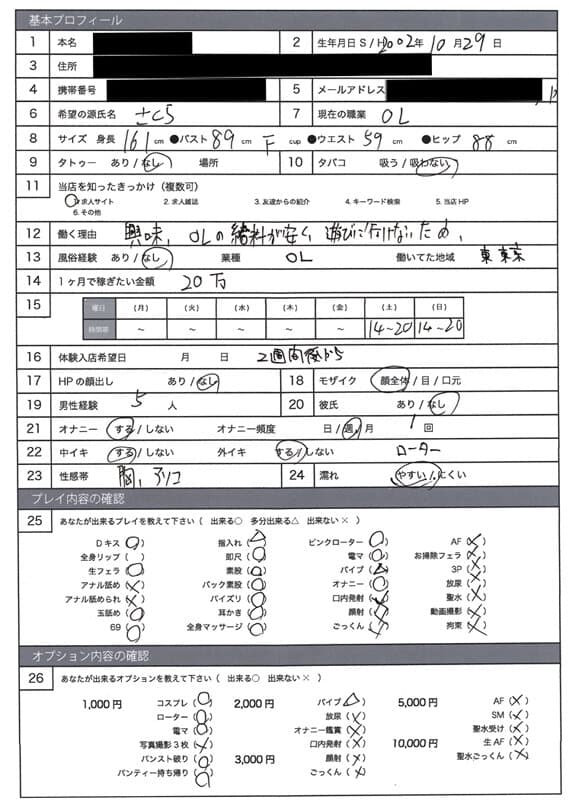 基本プロフィール
1 本名 2 生年月日 S / H 2002年 10月 29日
3 住所
4 携帯番号 5 メールアドレス
6 希望の源氏名 さくら 7 現在の職業 OL
8 サイズ 身長 161 cm ●バスト 89 cm F cup ●ウエスト 59 cm ●ヒップ 88 cm
9 タトゥー あり / なし 場所 10 タバコ 吸う / 吸わない
11 当店を知ったきっかけ（複数可）
1. 求人サイト 2. 求人雑誌 3. 友達からの紹介 4. キーワード検索 5. 当店 HP
6. その他
12 働く理由 興味、OLの給料が安く、遊びに行けないため、
13 風俗経験 あり / なし 業種 OL 働いてた地域 東京
14 1ヶ月で稼ぎたい金額 20万
15 曜日 （月） （火） （水） （木） （金） （土） （日）
時間帯 ～ ～ ～ ～ ～ 14~20 14~20
16 体験入店希望日 月 日 2週間後から
17 HP の顔出し あり / なし 18 モザイク 顔全体 / 目 / 口元
19 男性経験 5 人 20 彼氏 あり / なし
21 オナニー する / しない オナニー頻度 日 / 週 / 月 1 回
22 中イキ する / しない 外イキ する / しない ローター
23 性感帯 胸、アソコ 24 濡れ やすい / にくい
プレイ内容の確認
25 あなたが出来るプレイを教えて下さい（ 出来る○ 多分出来る△ 出来ない× ）
Dキス (○) 指入れ (△) ピンクローター (○) AF (×)
全身リップ ( ) 即尺 (○) 電マ (○) お掃除フェラ (×)
生フェラ (○) 素股 (○) バイブ (△) 3P (×)
アナル舐め (×) バック素股 (○) オナニー (○) 放尿 (×)
アナル舐められ (×) パイズリ (○) 口内発射 (×) 聖水 (×)
玉舐め (○) 耳かき (○) 顔射 (×) 動画撮影 (×)
69 (○) 全身マッサージ (○) ごっくん (×) 拘束 (×)
オプション内容の確認
26 あなたが出来るオプションを教えて下さい（ 出来る○ 出来ない× ）
1,000円 コスプレ (○) 2,000円 バイブ (△) 5,000円 AF (×)
ローター (○) 放尿 (×) SM (×)
電マ (○) オナニー鑑賞 (×) 聖水受け (×)
写真撮影3枚 (×) 口内発射 (×) 10,000円 生AF (×)
パンスト破り (○) 3,000円 顔射 (×) 聖水ごっくん (×)
パンティー持ち帰り (○) ごっくん (×)